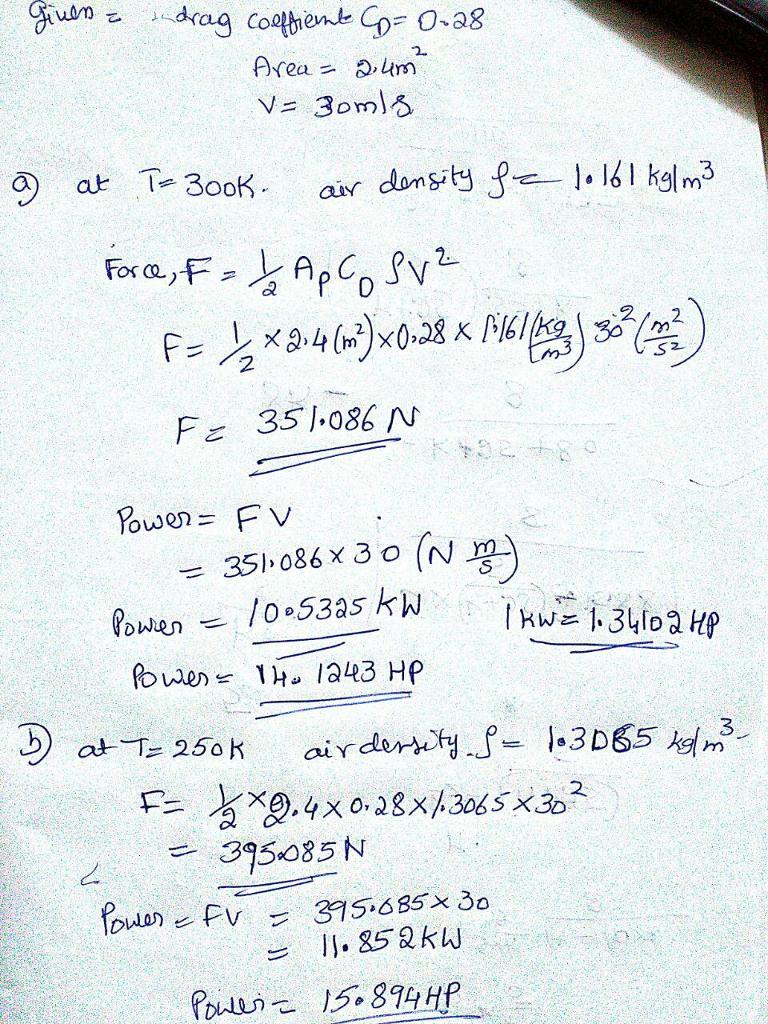 Given = drag coefficient C_D = 0.28
Area = 2.4m²
V = 30m/s
a) at T = 300K. air density ρ = 1.161 kg/m³
Force, F = 1/2 A_P C_D ρV²
F = 1/2 × 2.4 (m²) × 0.28 × 1.161 (kg/m³) 30² (m²/s²)
F = 351.086 N
Power = FV
= 351.086 × 30 (N m/s)
Power = 10.5325 KW 1 KW = 1.34102 HP
Power = 14.1243 HP
b) at T = 250K air density ρ = 1.3065 kg/m³
F = 1/2 × 2.4 × 0.28 × 1.3065 × 30²
= 395.085 N
Power = FV = 395.085 × 30
= 11.852 KW
Power = 15.894 HP